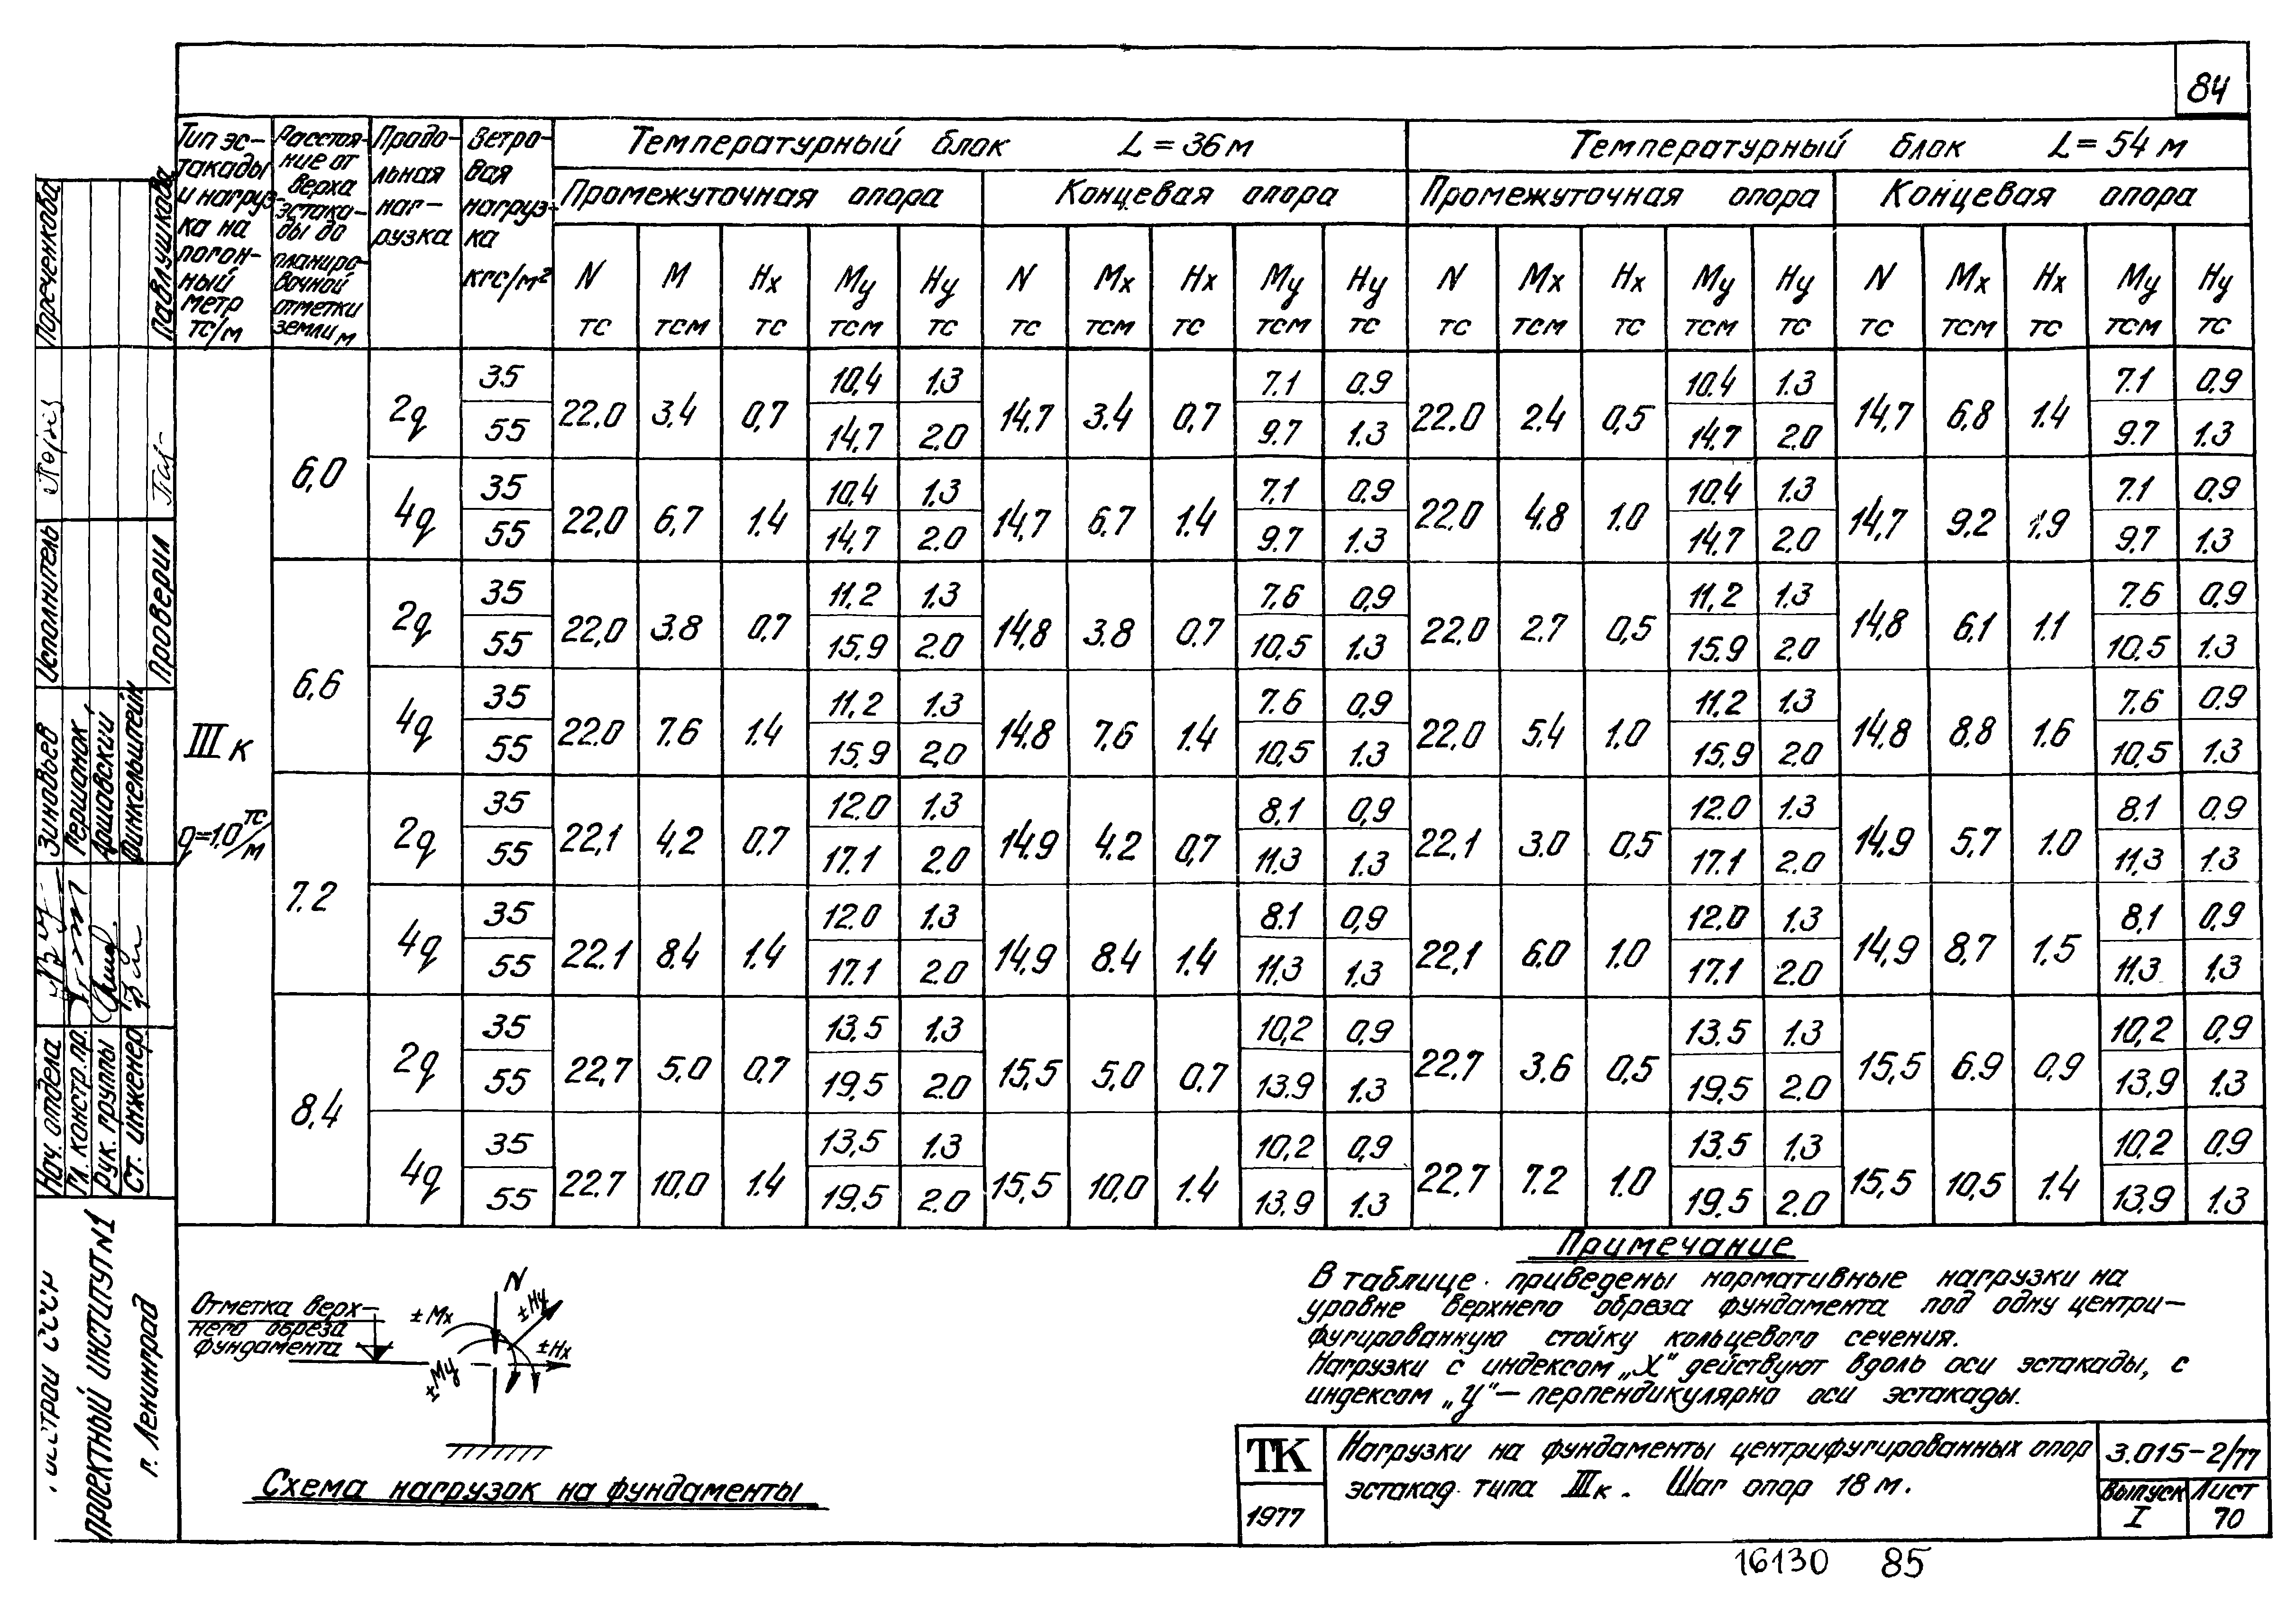 84
Тип эс-
такады
и нагруз-
ка на
погон-
ный
метр
тс/м
Расстоя-
ние от
верха
эстака-
ды до
планиро-
вочной
отметки
земли м
Продо-
льная
наг-
рузка
Ветро-
вая
нагруз-
ка
кгс/м²
Температурный блок L = 36 м
Температурный блок L = 54 м
Промежуточная опора Концевая опора Промежуточная опора Концевая опора
N M Hx My Hy N Mx Hx My Hy N Mx Hx My Hy N Mx Hx My Hy
тс тсм тс тсм тс тс тсм тс тсм тс тс тсм тс тсм тс тс тсм тс тсм тс
III к
q=1.0 тс/м
6,0
2q 35 22.0 3.4 0,7 10,4 1.3 14.7 3.4 0,7 7.1 0.9 22.0 2.4 0,5 10.4 1.3 14,7 6,8 1.4 7.1 0.9
55 14,7 2.0 9.7 1.3 14.7 2.0 9.7 1.3
4q 35 22,0 6,7 1.4 10,4 1.3 14,7 6.7 1.4 7.1 0.9 22.0 4.8 1.0 10.4 1.3 14,7 9.2 1.9 7.1 0.9
55 14,7 2.0 9.7 1.3 14,7 2.0 9.7 1.3
6,6
2q 35 22,0 3.8 0.7 11,2 1.3 14,8 3.8 0.7 7.6 0,9 22.0 2.7 0,5 11,2 1.3 14,8 6,1 1.1 7.6 0,9
55 15.9 2.0 10,5 1.3 15.9 2.0 10,5 1.3
4q 35 22.0 7.6 1.4 11,2 1.3 14.8 7.6 1.4 7.6 0,9 22.0 5.4 1.0 11.2 1.3 14.8 8.8 1.6 7.6 0.9
55 15.9 2,0 10,5 1.3 15.9 2.0 10,5 1.3
7.2
2q 35 22,1 4,2 0.7 12.0 1.3 14.9 4.2 0,7 8.1 0,9 22.1 3.0 0,5 12.0 1.3 14.9 5.7 1.0 8.1 0,9
55 17.1 2.0 11,3 1.3 17.1 2.0 11,3 1.3
4q 35 22.1 8.4 1.4 12.0 1.3 14,9 8.4 1.4 8.1 0,9 22,1 6.0 1.0 12.0 1.3 14.9 8,7 1.5 8,1 0,9
55 17.1 2.0 11,3 1.3 17.1 2.0 11,3 1.3
8,4
2q 35 22,7 5.0 0.7 13.5 1.3 15,5 5,0 0.7 10,2 0,9 22.7 3.6 0,5 13.5 1.3 15,5 6.9 0,9 10,2 0,9
55 19,5 2.0 13.9 1.3 19,5 2.0 13,9 1.3
4q 35 22.7 10,0 1.4 13,5 1.3 15,5 10,0 1.4 10,2 0,9 22.7 7.2 1.0 13.5 1.3 15,5 10,5 1.4 10,2 0.9
55 19.5 2.0 13.9 1.3 19.5 2.0 13,9 1.3
Отметка верх-
него обреза
фундамента
N
± Mx
± Hy
± Hx
± My
Схема нагрузок на фундаменты
Примечание
В таблице приведены нормативные нагрузки на
уровне верхнего обреза фундамента под одну центри-
фугированную стойку кольцевого сечения.
Нагрузки с индексом „X" действуют вдоль оси эстакады, с
индексом „У"— перпендикулярно оси эстакады.
ТК
1977
Нагрузки на фундаменты центрифугированных опор
эстакад типа III к. Шаг опор 18 м.
3.015-2/77
Выпуск Лист
I 70
16130 85
Нач. отдела Зиновьев Исполнитель Пореченкова
Гл. констр. пр. Першанок
Рук. группы Аршавский
Ст. инженер Финкельштейн Проверил Павлушкова
СССР
ПРОЕКТНЫЙ ИНСТИТУТ №1
г. Ленинград